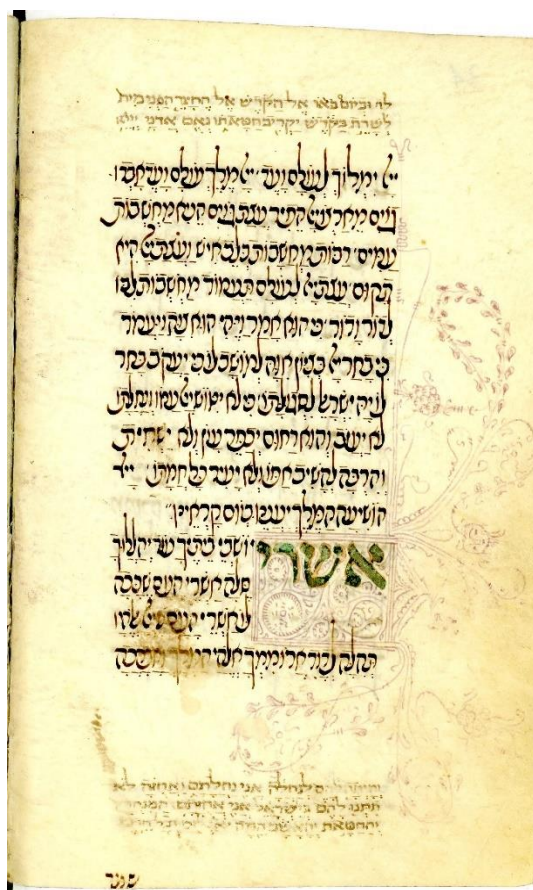 לו וביום באו אל הקדש אל החצר הפנימית
לשרת בקדש יקריב חטאתו נאם אדני
יי ימלוך לעולם ועד יי מלך עולם ועד אבדו
גוים מארצו יי הפיר עצת גוים הניא מחשבות
עמים רבות מחשבות בלב איש ועצת יי היא
תקום עצת יי לעולם תעמוד מחשבות לבו
לדור ודור כי הוא אמר ויהי הוא צוה ויעמד
כי בחר יי בציון אוה למושב לו כי יעקב בחר
לו יה ישראל לסגולתו כי לא יטוש יי עמו ונחלתו
לא יעזב והוא רחום יכפר עון ולא ישחית
והרבה להשיב אפו ולא יעיר כל חמתו יי
הושיעה המלך יעננו ביום קראינו
אשרי יושבי ביתך עוד יהללוך
סלה אשרי העם שככה
לו אשרי העם שיי אלהיו
תהלה לדוד ארוממך אלהי המלך ואברכה
והיתה להם לנחלה אני נחלתם ואחזה לא
תתנו להם בישראל אני אחזתם המנחה
והחטאת והאשם המה
שמך